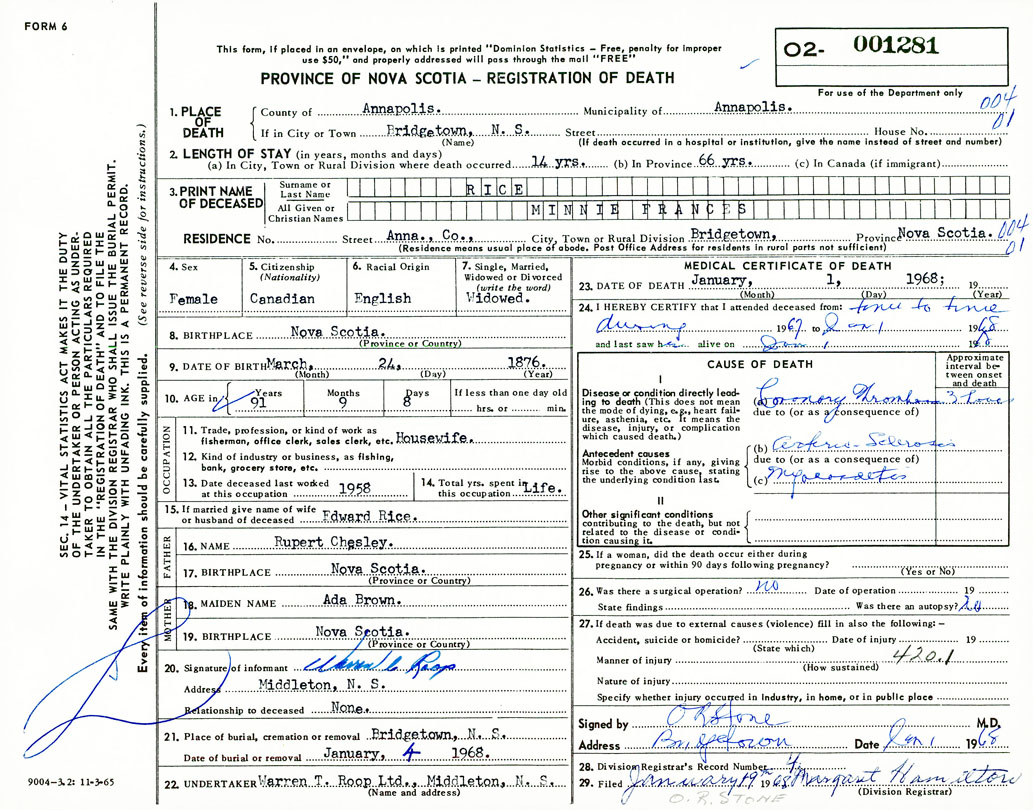 FORM 6
This form, if placed in an envelope, on which is printed "Dominion Statistics – Free, penalty for improper
use $50," and properly addressed will pass through the mail "FREE"
PROVINCE OF NOVA SCOTIA – REGISTRATION OF DEATH
02- 001281
For use of the Department only
004
01
1. PLACE OF DEATH
County of Annapolis. Municipality of Annapolis.
If in City or Town Bridgetown, N. S. Street House No.
(Name) (If death occurred in a hospital or institution, give the name instead of street and number)
2. LENGTH OF STAY (in years, months and days)
(a) In City, Town or Rural Division where death occurred 14 yrs. (b) In Province 66 yrs. (c) In Canada (if immigrant)
3. PRINT NAME OF DECEASED
Surname or Last Name RICE
All Given or Christian Names MINNIE FRANCES
RESIDENCE No. Street Anna., Co., City, Town or Rural Division Bridgetown, Province Nova Scotia. 004
01
(Residence means usual place of abode. Post Office Address for residents in rural parts not sufficient)
4. Sex
Female
5. Citizenship
(Nationality)
Canadian
6. Racial Origin
English
7. Single, Married,
Widowed or Divorced
(write the word)
Widowed.
8. BIRTHPLACE Nova Scotia.
(Province or Country)
9. DATE OF BIRTH March, 24, 1876.
(Month) (Day) (Year)
10. AGE in Years Months Days If less than one day old
91 9 8 hrs. or min.
OCCUPATION
11. Trade, profession, or kind of work as
fisherman, office clerk, sales clerk, etc. Housewife.
12. Kind of industry or business, as fishing,
bank, grocery store, etc.
13. Date deceased last worked
at this occupation 1958
14. Total yrs. spent in
this occupation Life.
15. If married give name of wife
or husband of deceased Edward Rice.
FATHER
16. NAME Rupert Chesley.
17. BIRTHPLACE Nova Scotia.
(Province or Country)
MOTHER
18. MAIDEN NAME Ada Brown.
19. BIRTHPLACE Nova Scotia.
(Province or Country)
20. Signature of informant Warren C Roop
Address Middleton, N. S.
Relationship to deceased None.
21. Place of burial, cremation or removal Bridgetown, N. S.
Date of burial or removal January, 4 1968.
22. UNDERTAKER Warren T. Roop Ltd., Middleton, N. S.
(Name and address)
MEDICAL CERTIFICATE OF DEATH
23. DATE OF DEATH January, 1, 1968; 19
(Month) (Day) (Year)
24. I HEREBY CERTIFY that I attended deceased from: time to time
during 1967 to Jan 1 1968
and last saw her alive on Jan 1 1968
CAUSE OF DEATH
Approximate
interval be-
tween onset
and death
I
Disease or condition directly lead-
ing to death (This does not mean
the mode of dying, e.g., heart fail-
ure, asthenia, etc. It means the
disease, injury, or complication
which caused death.)
(a) Coronary Thrombosis
due to (or as a consequence of)
Antecedent causes
Morbid conditions, if any, giving
rise to the above cause, stating
the underlying condition last.
(b) Arterio-Sclerosis
due to (or as a consequence of)
(c) Myocarditis
II
Other significant conditions
contributing to the death, but not
related to the disease or condi-
tion causing it.
25. If a woman, did the death occur either during
pregnancy or within 90 days following pregnancy?
(Yes or No)
26. Was there a surgical operation? no Date of operation 19
State findings Was there an autopsy? no
27. If death was due to external causes (violence) fill in also the following: –
Accident, suicide or homicide? Date of injury 19
(State which)
Manner of injury 420.1
(How sustained)
Nature of injury
Specify whether injury occurred in Industry, in home, or in public place
Signed by O R Stone M.D.
Address Bridgetown Date Jan 1 1968
28. Division Registrar's Record Number 4
29. Filed January 19th 1968 Margaret Hamilton
(Division Registrar)
O. R. STONE
SEC. 14 – VITAL STATISTICS ACT MAKES IT THE DUTY
OF THE UNDERTAKER OR PERSON ACTING AS UNDER-
TAKER TO OBTAIN ALL THE PARTICULARS REQUIRED
IN THE "REGISTRATION OF DEATH" AND TO FILE THE
SAME WITH THE DIVISION REGISTRAR WHO SHALL ISSUE THE BURIAL PERMIT.
WRITE PLAINLY WITH UNFADING INK. THIS IS A PERMANENT RECORD.
Every item of information should be carefully supplied. (See reverse side for instructions.)
9004-3.2: 11-3-65